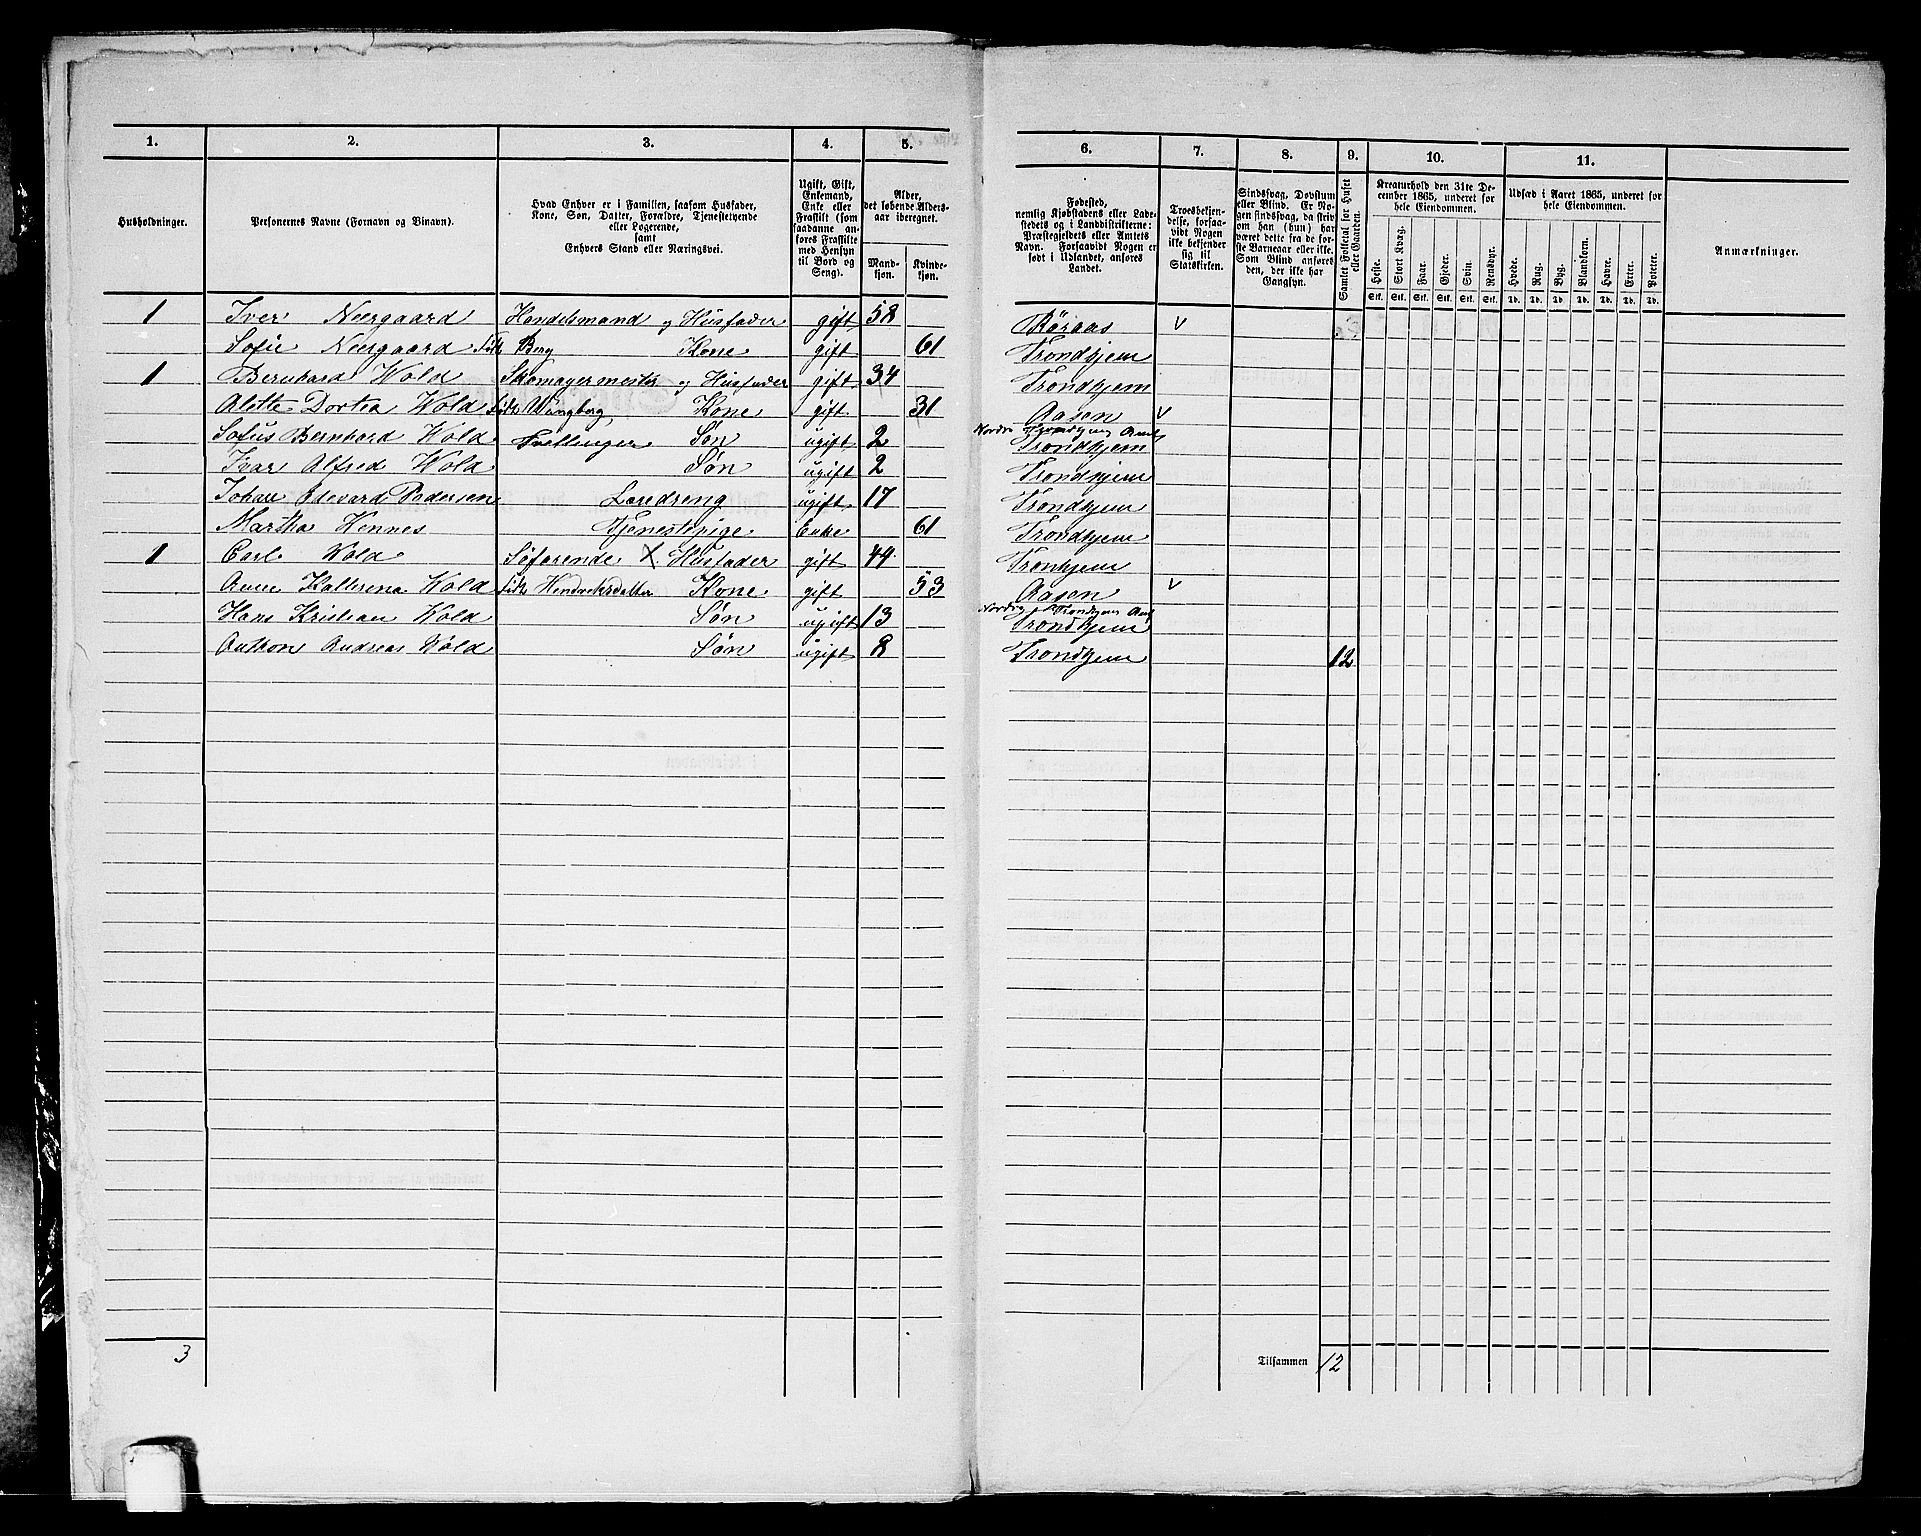 1. 2. 3. 4. 5. 6. 7. 8. 9. 10. 11.
Husholdninger.
Personernes Navne (Fornavn og Vinavn).
Hvad Enhver er i Familien, saasom Husfader,
Kone, Søn, Datter, Forældre, Tjenestetyende
eller Logerende,
samt
Enhvers Stand eller Næringsvei.
Ugift, Gift,
Enkemand,
Enke eller
Fraskilt (som
saadanne an-
føres Fraskilte
med Hensyn
til Bord og
Seng).
Alder,
det løbende Alders-
aar iberegnet.
Mand-
kjøn.
Kvinde-
kjøn.
Fødested,
nemlig Kjøbstadens eller Lade-
stedets og i Landdistrikterne:
Præstegjeldets eller Amtets
Navn. Forsaavidt Nogen er
født i Udlandet, anføres
Landet.
Troesbekjen-
delse, forsaa-
vidt Nogen
ikke bekjender
sig til
Statskirken.
Sindssvag, Døvstum
eller Blind. Er No-
gen sindssvag, da skriv
om han (hun) har
været dette fra de før-
ste Barneaar eller ikke.
Som Blind anføres
den, der ikke har
Gangsyn.
Samlet Folketal for Huset
eller Gaarden.
Kreaturhold den 31te De-
cember 1865, underet for
hele Eiendommen.
Heste. Stort Kvæg. Faar. Gjeder. Svin. Rensdyr.
Stk. Stk. Stk. Stk. Stk. Stk.
Udsæd i Aaret 1865, underet for
hele Eiendommen.
Hvede. Rug. Byg. Blandkorn. Havre. Erter. Poteter.
Td. Td. Td. Td. Td. Td. Td.
Anmærkninger.
1 Iver Neergaard Handelsmand og Husfader gift 58 Röraas v
Sofie Neergaard født Berg Kone gift 61 Trondhjem
1 Bernhard Wold Skomagermester og Husfader gift 34 Trondhjem
Alette Dortea Wold født Wangberg Kone gift 31 Aasen v
Nordre Trondhjems Amt
Sofus Bernhard Wold Tvillinger Søn ugift 2 Trondhjem
Ivar Alfred Wold Søn ugift 2 Trondhjem
Johan Edevard Pedersen Læredreng ugift 17 Trondhjem
Martha Hennes Tjenestepige Enke 61 Trondhjem
1 Carl Wold Søfarende X Husfader gift 44 Tronhjem
Anne Katterena Wold født Hendreksdatter Kone gift 53 Aasen v
Nordre Trondhjems Amt
Hans Kristian Wold Søn ugift 13 Trondhjem
Anthon Andreas Wold Søn ugift 8 Trondhjem 12
3
Tilsammen 12